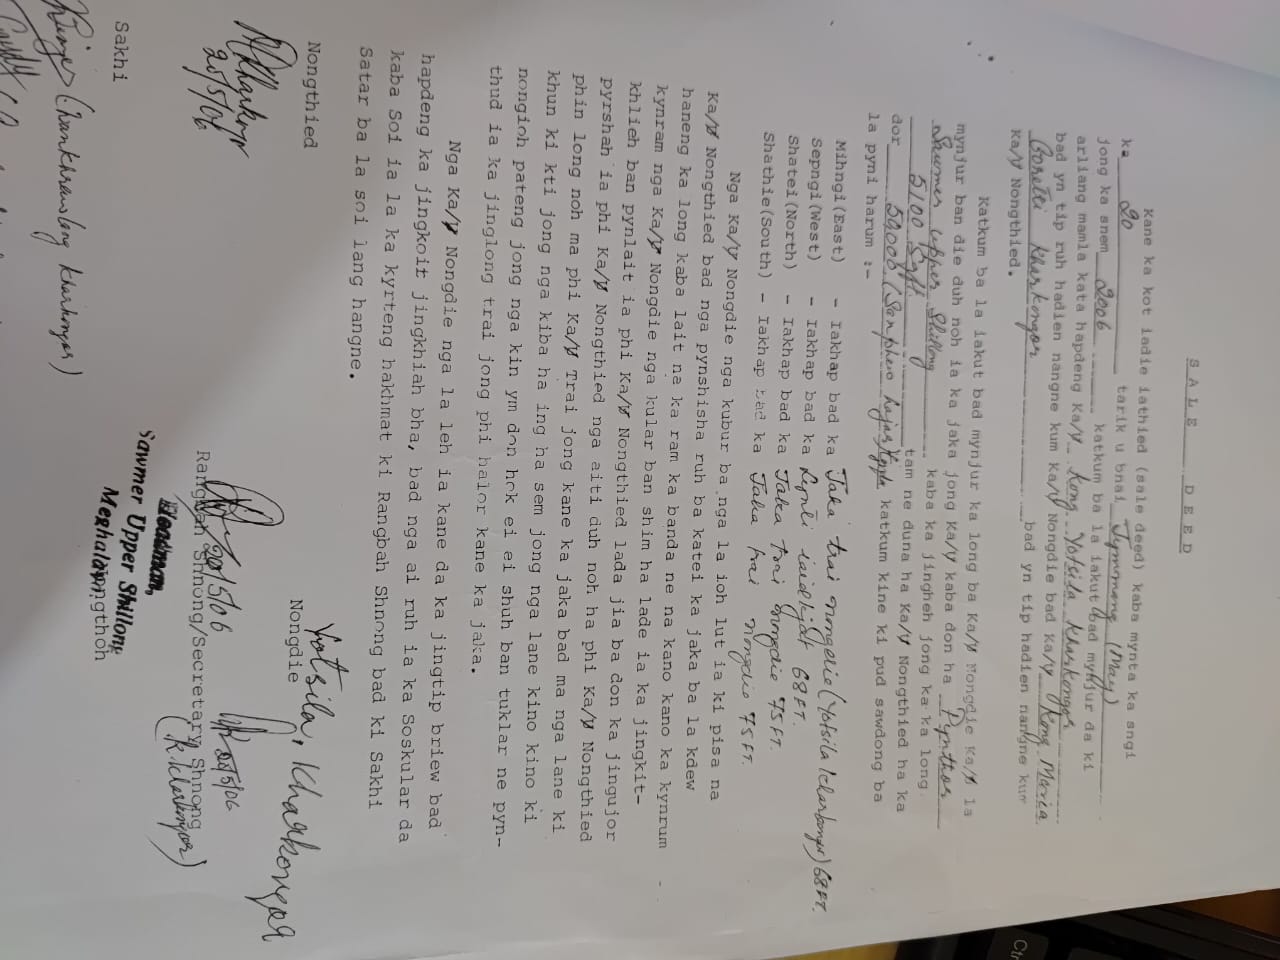 SALE DEED
Kane ka kot iadie iathied (sale deed) kaba mynta ka sngi
ka 20 tarik u bnai Jymmang (May)
jong ka snem 2006 katkum ba la iakut bad mynjur da ki
arliang mamla kata hapdeng Ka/y Kong Yotsila Kharkongor
bad yn tip ruh hadien nangne kum Ka/y Nongdie bad Ka/y Kong Maria
Goretti Kharkongor bad yn tip hadien nangne kum
Ka/y Nongthied.
Katkum ba la iakut bad mynjur ka long ba Ka/y Nongdie Ka/y la
mynjur ban die duh noh ia ka jaka jong Ka/y kaba don ha Pynthor
Sawmer Upper Shillong kaba ka jingheh jong ka ka long
5100 Sqft. tam ne duna ha Ka/y Nongthied ha ka
dor 59000 (Sanphew hajar katkum kine ki pud sawdong ba
la pyni harum :-
Mihngi(East) - Iakhap bad ka Jaka trai nongdie (Yotsila Kharkongor) 68FT.
Sepngi(West) - Iakhap bad ka Lynti iaidkjat 68FT.
Shatei(North) - Iakhap bad ka Jaka trai nongdie 75FT.
Shathie(South) - Iakhap bad ka Jaka trai nongdie 75FT.
Nga Ka/y Nongdie nga kubur ba nga la ioh lut ia ki pisa na
Ka/y Nongthied bad nga pynshisha ruh ba katei ka jaka ba la kdew
haneng ka long kaba lait na ka ram ka banda ne na kano kano ka kynrum
kynram nga Ka/y Nongdie nga kular ban shim ha lade ia ka jingkit-
khlieh ban pynlait ia phi Ka/y Nongthied lada jia ba don ka jingujor
pyrshah ia phi Ka/y Nongthied nga aiti duh noh ha phi Ka/y Nongthied
phin long noh ma phi Ka/y Trai jong kane ka jaka bad ma nga lane ki
khun ki kti jong nga kiba ha ing ha sem jong nga lane kino kino ki
nongioh pateng jong nga kin ym don hok ei ei shuh ban tuklar ne pyn-
thud ia ka jinglong trai jong phi halor kane ka jaka.
Nga Ka/y Nongdie nga la leh ia kane da ka jingtip briew bad
hapdeng ka jingkoit jingkhiah bha, bad nga ai ruh ia ka Soskular da
kaba Soi ia la ka kyrteng hakhmat ki Rangbah Shnong bad ki Sakhi
Satar ba la soi lang hangne.
Yotsila, Kharkongor
Nongthied
Nongdie
MKharkongor
20/5/06
20/5/06
20/5/06
Rangbah Shnong/Secretary Shnong
(R.Kharkongor)
Headman,
Sawmer Upper Shillong
Meghalaya
Sakhi